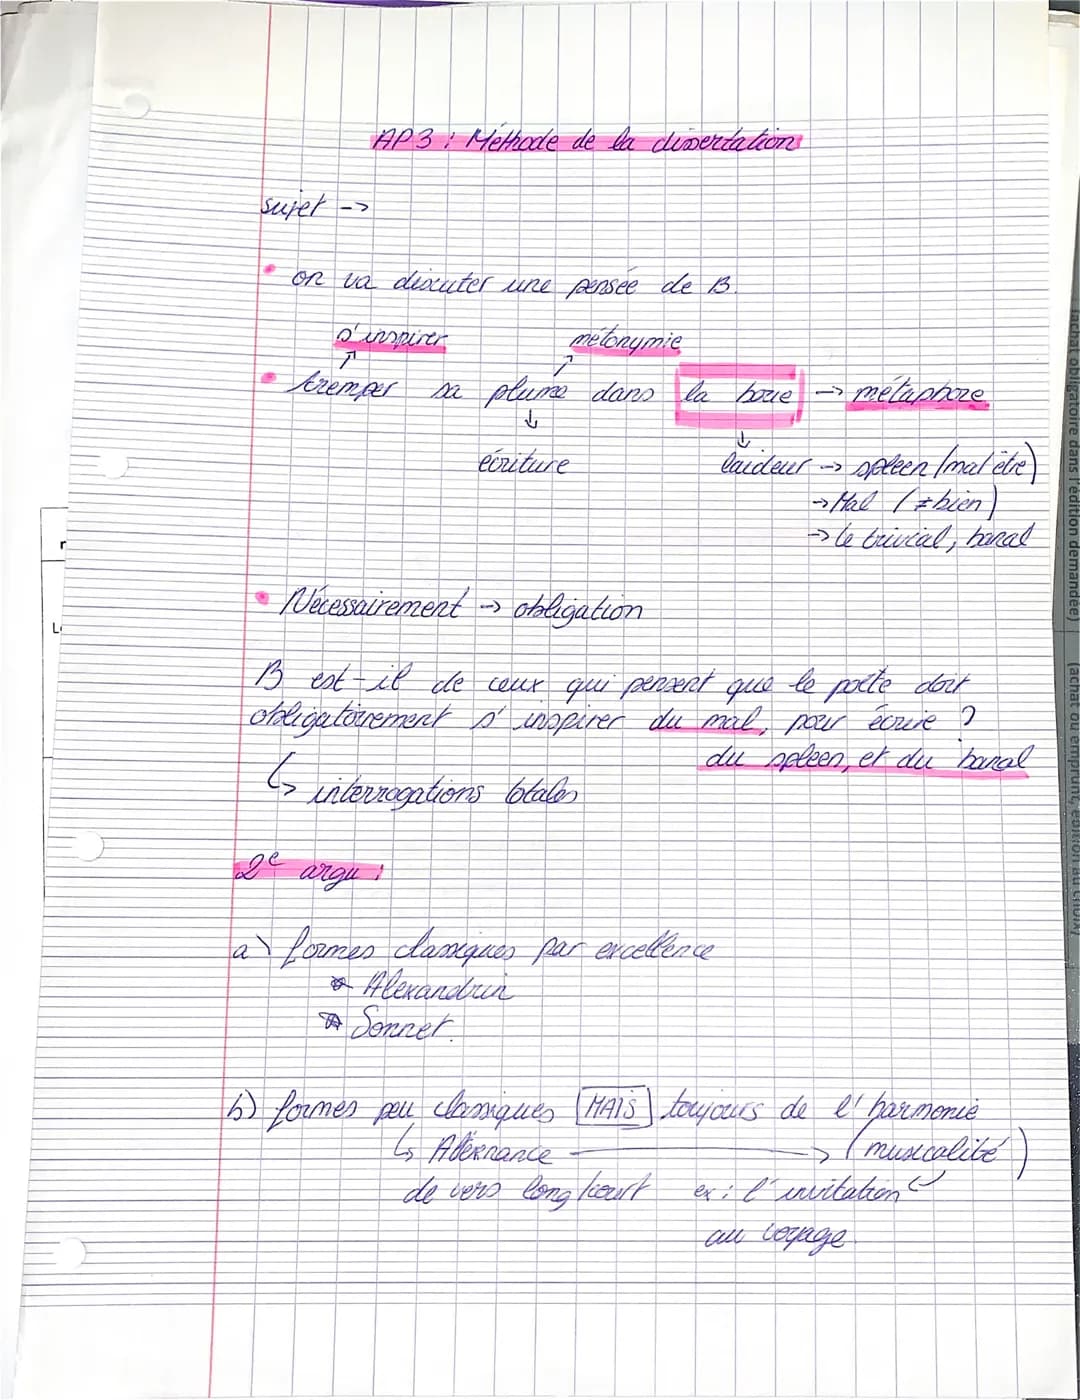 AP3 : Méthode de la dissertation
sujet ->
• on va discuter une pensée de B.
s'inspirer métonymie
• tremper sa plume dans la boue -> métaphore
écriture laideur -> spleen (mal être)
-> Mal (≠ bien)
-> le trivial, banal
• Nécessairement -> obligation
B est-il de ceux qui pensent que le poète doit
obligatoirement s'inspirer du mal, pour écrire ?
du spleen, et du banal
↳ interrogations totales
2e argu :
a) formes classiques par excellence
* Alexandrin
* Sonnet.
b) formes peu classiques MAIS toujours de l'harmonie
↳ Alternance -> (musicalité)
de vers long/court ex : l'invitation
au voyage
l'achat obligatoire dans l'édition demandée)
(achat ou emprunt, édition au choix)